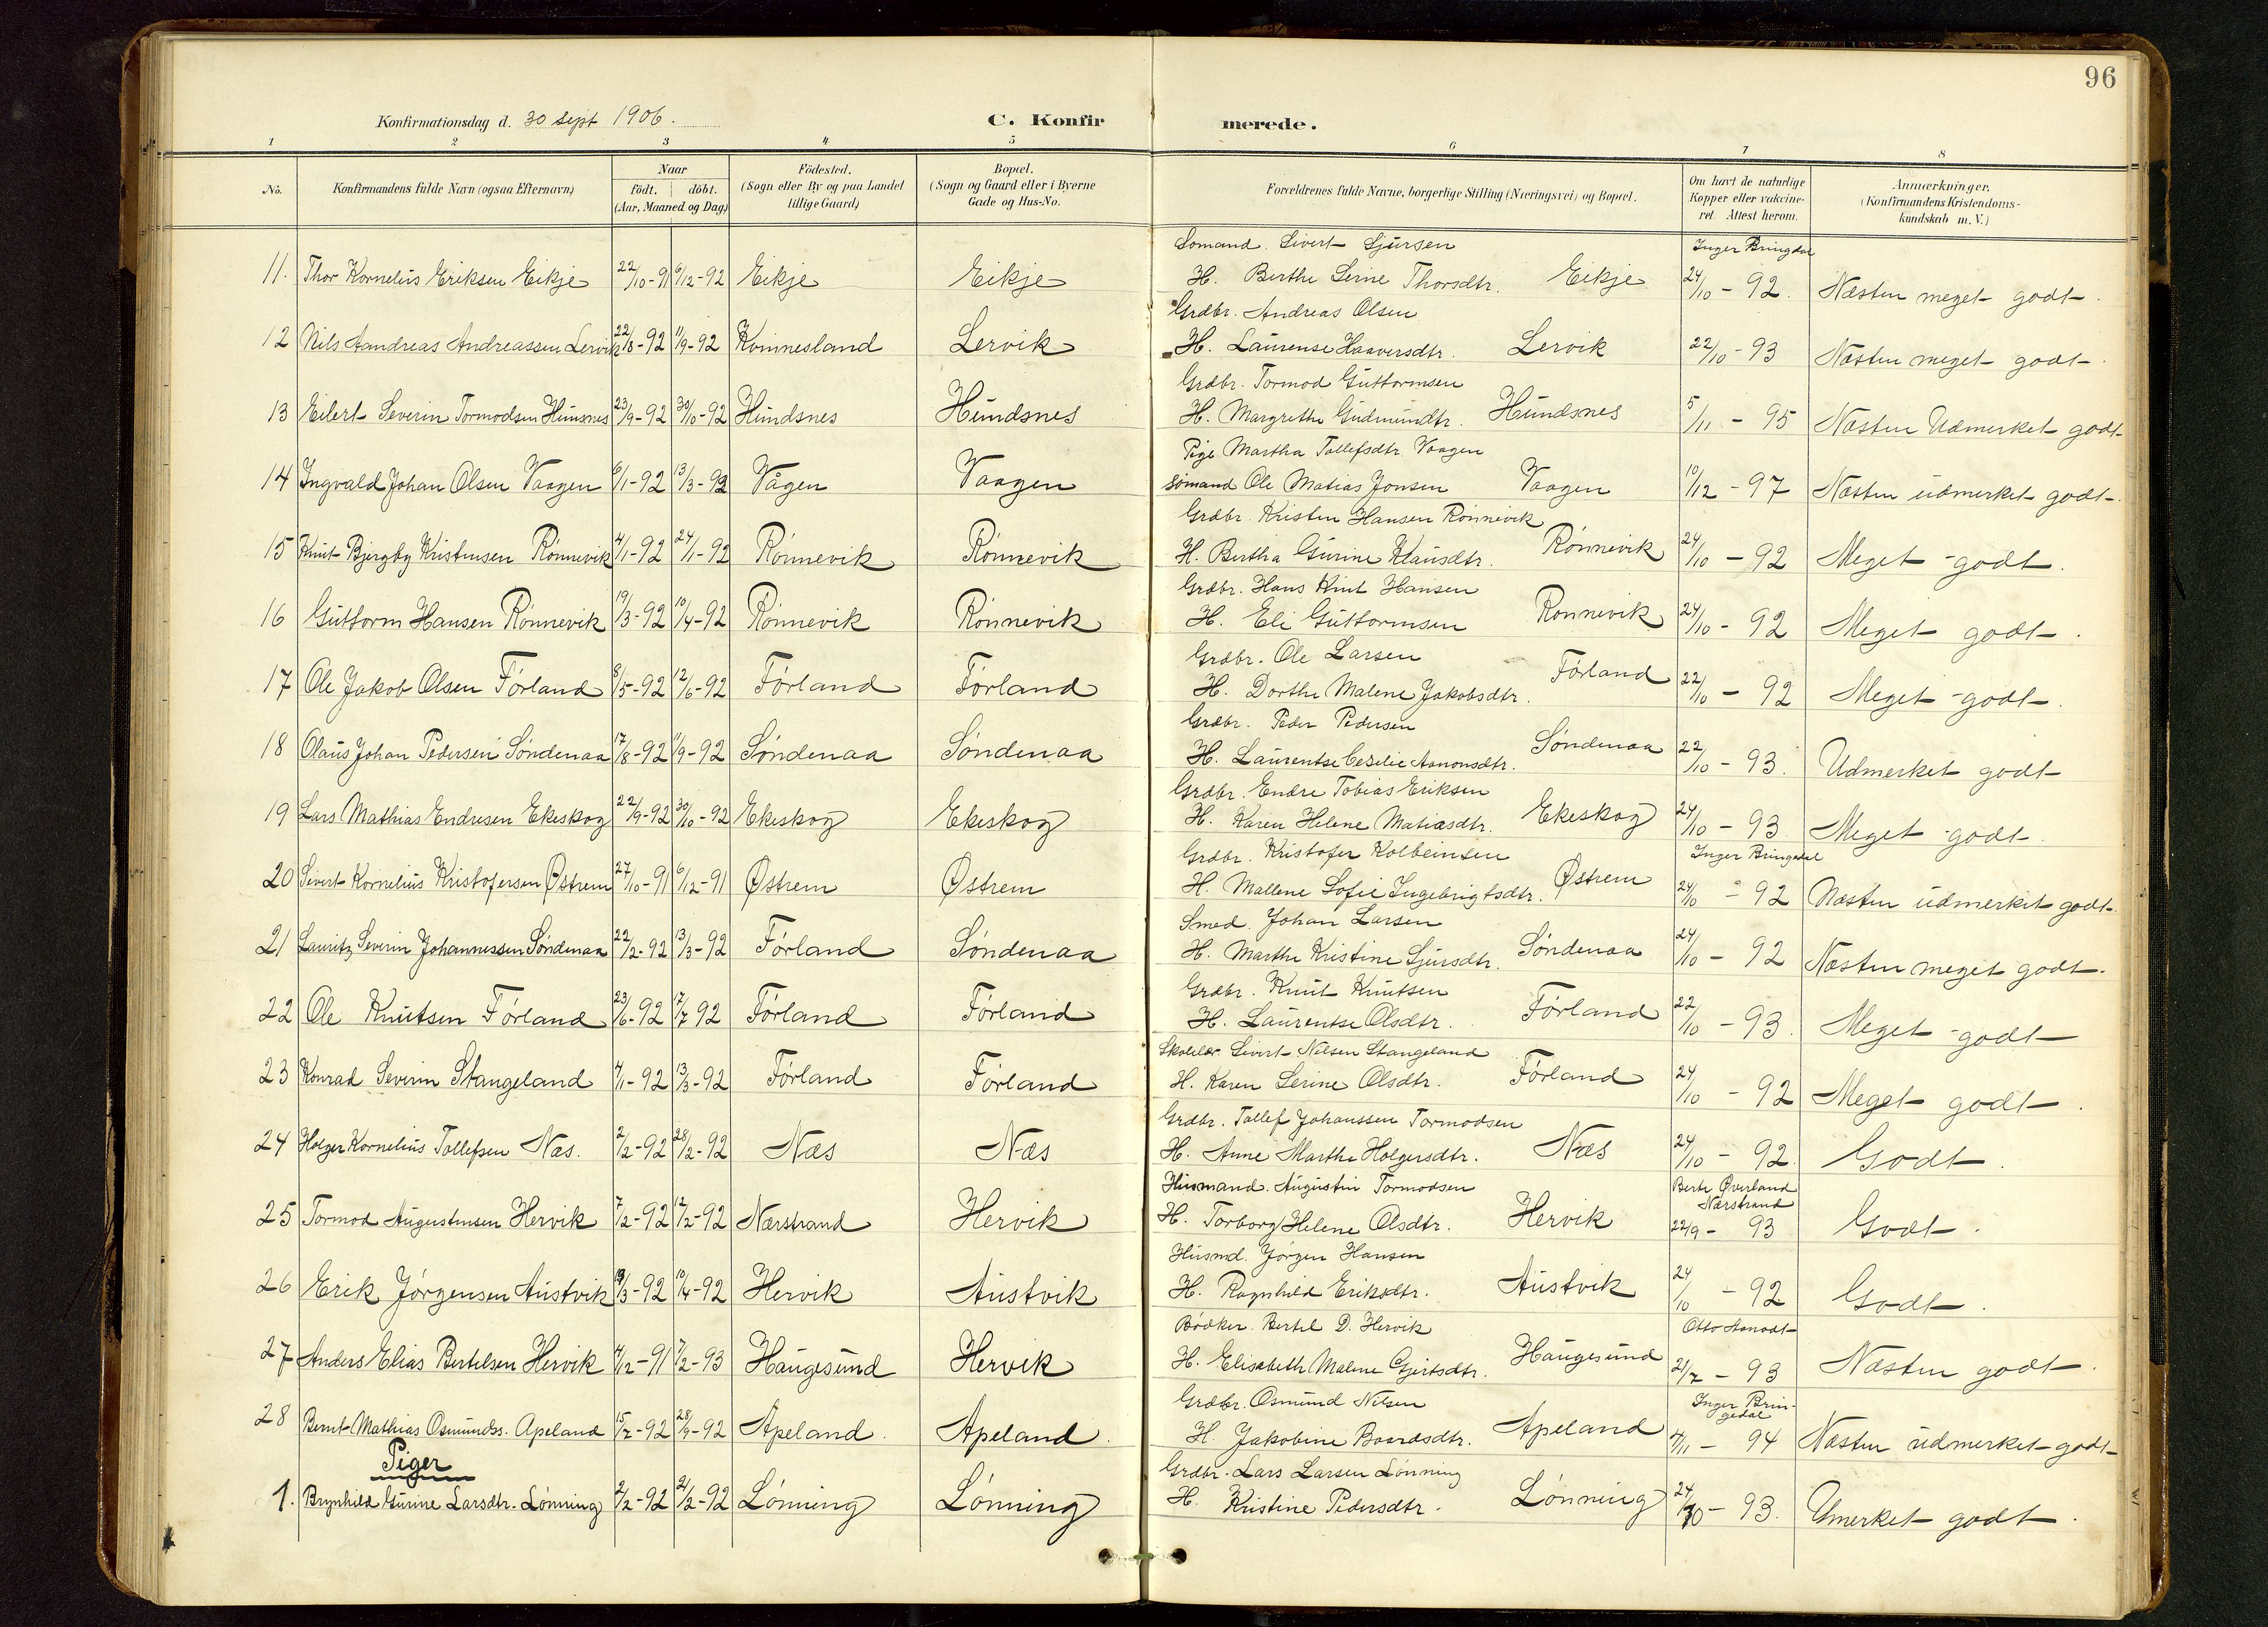 96
Konfirmationsdag d. 30 Sept 1906.
C. Konfirmerede.
1 2 3 4 5 6 7 8
No. Konfirmandens fulde Navn (ogsaa Efternavn) Naar født. døbt. (Aar, Maaned og Dag) Födested. (Sogn eller By og paa Landet tillige Gaard) Bopæl. (Sogn og Gaard eller i Byerne Gade og Hus-No. Forældrenes fulde Navne, borgerlige Stilling (Næringsvei) og Bopæl. Om havt de naturlige Kopper eller vakcineret. Attest herom. Anmærkninger. (Konfirmandens Kristendomskundskab m. V.)
Sømand. Sivert Sjursen Inger Bringdal
11. Thor Kornelius Eriksen Eikje 22/10-91 6/12-92 Eikje Eikje H. Berthe Serine Thorsdtr. Eikje 24/10-92. Næsten meget godt.
Grdbr. Andreas Olsen
12 Nils Aandreas Andreassen Lervik 22/8-92 11/9-92 Kvinnesland Lervik H. Laurense Haaversdtr. Lervik 22/10-93 Næsten meget godt.
Grdbr. Tormod Guttormsen
13 Eilert Severin Tormodsen Hunsnes 23/9-92 30/10-92 Hundsnes Hundsnes H. Margrethe Gudmundtr. Hundsnes 5/11-95 Næsten Udmerket godt
Pige Martha Tollefsdtr. Vaagen
14 Ingvald Johan Olsen Vaagen 6/1-92 13/3-92 Vågen Vaagen Sømand Ole Matias Jonsen Vaagen 10/12-97 Næsten udmerket godt.
Grdbr. Kristen Hansen Rønnevik
15 Knut Bjergby Kristensen Rønnevik 4/1-92 24/1-92 Rønnevik Rønnevik H. Bertha Gurine Klausdtr. Rønnevik 24/10-92 Meget godt.
Grdbr. Hans Knut Hansen
16 Guttorm Hansen Rønnevik 19/3-92 10/4-92 Rønnevik Rønnevik H. Eli Guttormsen Rønnevik 24/10-92 Meget godt.
Grdbr. Ole Larsen
17 Ole Jakob Olsen Førland 8/5-92 12/6-92 Førland Førland H. Dorthe Malene Jakobsdtr. Førland 22/10-92 Meget godt.
Grdbr. Peder Pedersen
18 Olaus Johan Pedersen Søndenaa 17/8-92 11/9-92 Søndenaa Søndenaa H. Laurentse Cesilie Aanonsdtr. Søndenaa 22/10-93. Udmerket godt
Grdbr. Endre Tobias Eriksen
19 Lars Mathias Endresen Ekeskog 22/9-92 30/10-92 Ekeskog Ekeskog H. Karen Helene Matiasdtr. Ekeskog 24/10-93. Meget godt.
Grdbr. Kristofer Kolbeinsen Inger Bringedal
20 Sivert Kornelius Kristofersen Østrem 27/10-91 6/12-91 Østrem Østrem H. Mallene Sofie Ingebrigtsdtr. Østrem 24/10-92 Næsten udmerket godt.
Smed. Johan Larsen
21 Lauritz Severin Johannessen Søndenaa 22/2-92 13/3-92 Førland Søndenaa H. Marthe Kristine Sjursdtr. Søndenaa 24/10-92 Næsten meget godt.
Grdbr. Knut Knutsen
22 Ole Knutsen Førland 23/6-92 17/7 92 Førland Førland H. Laurentse Olsdtr. Førland 22/10-93. Meget godt
Skolelær. Sivert Nilsen Stangeland
23 Konrad Severin Stangeland 4/1-92 13/3-92 Førland Førland H. Karen Serine Olsdtr. Førland 24/10-92 Meget godt.
Grdbr. Tollef Johanssen Tormodsen
24 Holger Kornelius Tollefsen Næs. 2/2-92 28/2-92 Næs Næs H. Anne Marthe Holgersdtr. Næs 24/10-92. Godt.
Husmand. Augustin Tormodsen Berte Øverland Nærstrand
25 Tormod Augustinsen Hervik 7/2-92 12/2-92 Nærstrand Hervik H. Torborg Helene Olsdtr. Hervik 22/9-93 Godt.
Husmd. Jørgen Hansen
26 Erik Jørgensen Austvik 19/3-92 10/4-92 Hervik Austvik H. Ragnhild Eriksdtr. Austvik 24/10-92 Godt.
Bødker. Bertel D. Hervik Otto Aanodt
27 Anders Elias Bertelsen Hervik 4/12-91 7/2-93 Haugesund Hervik H. Elisabeth Malene Gjertsdtr. Haugesund 21/7-93 Næsten godt.
Grdbr. Osmund Nilsen Inger Bringedal
28 Bernt Mathias Osmundss. Apeland 15/7-92 28/9-92 Apeland. Apeland. H. Jakobine Baardsdtr. Apeland 4/11-94 Næsten udmerket godt
Piger
Grdbr. Lars Larsen Lønning
1. Brynhild Gurine Larsdtr. Lønning 2/2-92 21/2-92 Lønning Lønning H. Kristine Pedersdtr. Lønning 24/10-93. Umerket godt.